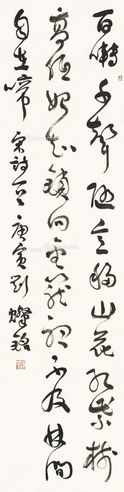 百啭千声随意移山花红紫树
高低始知锁向金笼听不及林间
自在啼 宋诗一首 庚寅 刘灿铭